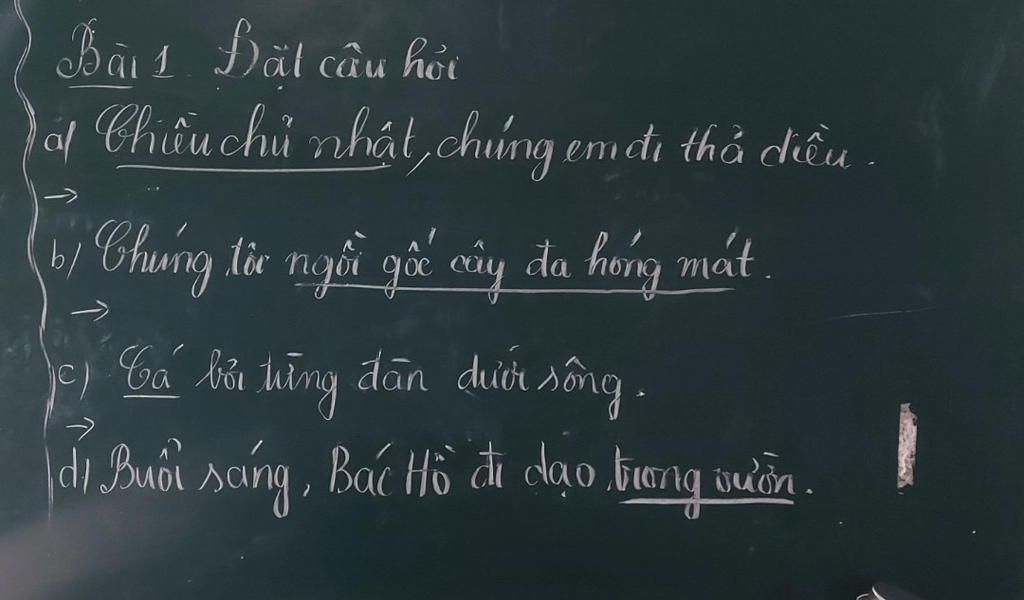 Bài 1 Đặt câu hỏi
a) Chiều chủ nhật, chúng em đi thả diều.
→
b) Chúng tôi ngồi gốc cây đa hóng mát.
→
c) Cá bơi từng đàn dưới sông.
→
d) Buổi sáng, Bác Hồ đi dạo trong vườn.